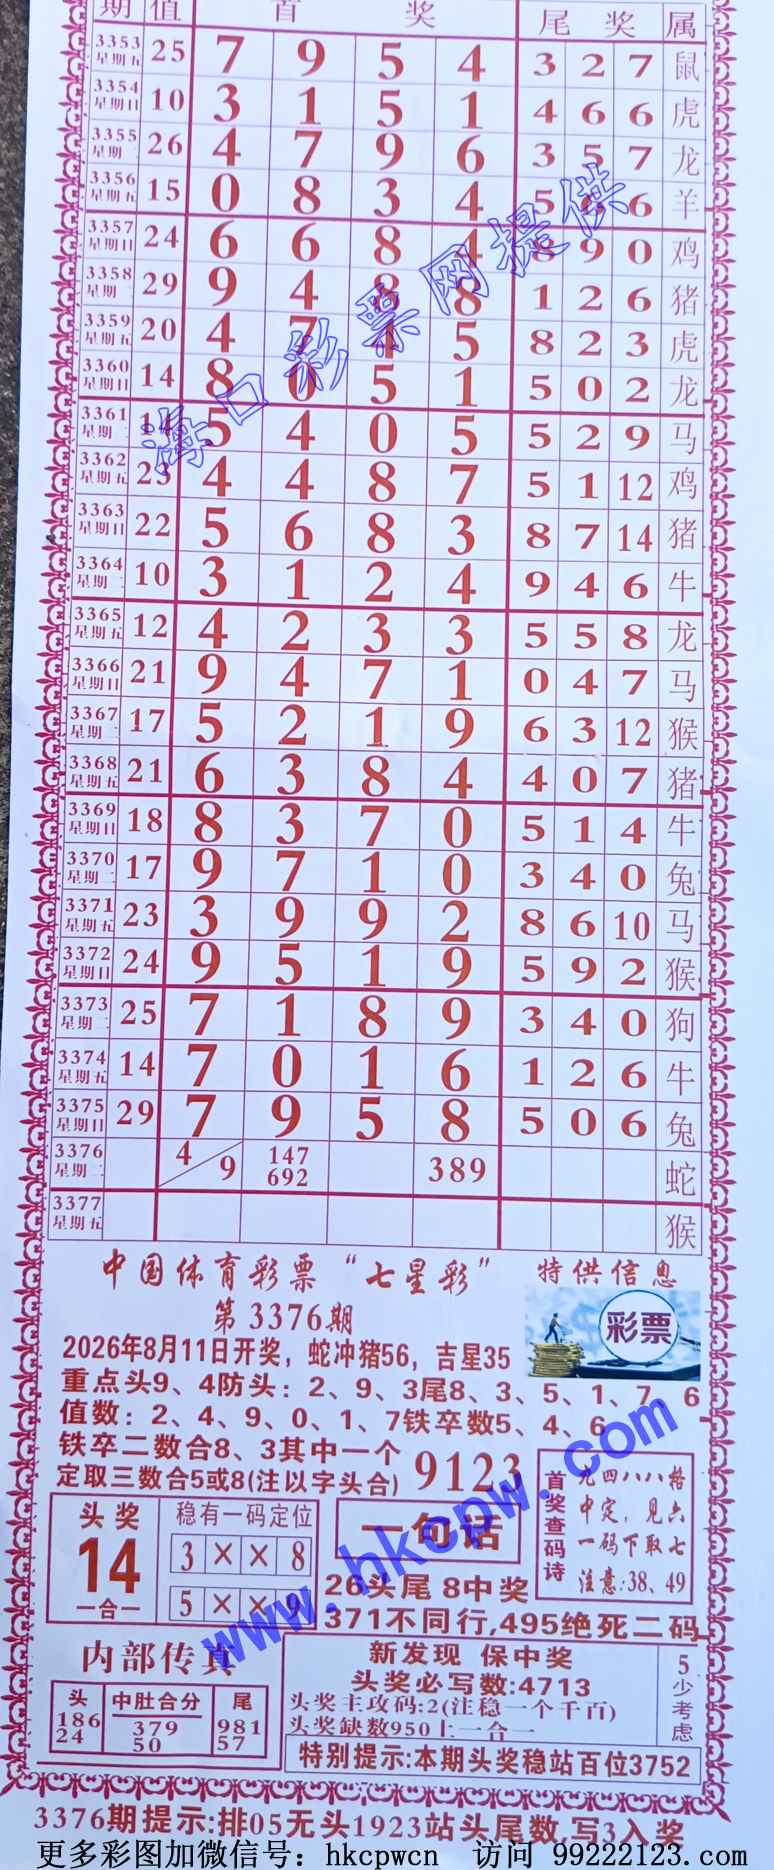 期 值 首 奖 尾 奖 属
3353 星期五 25 7 9 5 4 3 2 7 鼠
3354 星期日 10 3 1 5 1 4 6 6 虎
3355 星期二 26 4 7 9 6 3 5 7 龙
3356 星期五 15 0 8 3 4 5 6 羊
3357 星期日 24 6 6 8 4 9 0 鸡
3358 星期二 29 9 4 8 8 1 2 6 猪
3359 星期五 20 4 7 4 5 8 2 3 虎
3360 星期日 14 8 0 5 1 5 0 2 龙
3361 星期二 14 5 4 0 5 5 2 9 马
3362 星期五 23 4 4 8 7 5 1 12 鸡
3363 星期日 22 5 6 8 3 8 7 14 猪
3364 星期二 10 3 1 2 4 9 4 6 牛
3365 星期五 12 4 2 3 3 5 5 8 龙
3366 星期日 21 9 4 7 1 0 4 7 马
3367 星期二 17 5 2 1 9 6 3 12 猴
3368 星期五 21 6 3 8 4 4 0 7 猪
3369 星期日 18 8 3 7 0 5 1 4 牛
3370 星期二 17 9 7 1 0 3 4 0 兔
3371 星期五 23 3 9 9 2 8 6 10 马
3372 星期日 24 9 5 1 9 5 9 2 猴
3373 星期二 25 7 1 8 9 3 4 0 狗
3374 星期五 14 7 0 1 6 1 2 6 牛
3375 星期日 29 7 9 5 8 5 0 6 兔
3376 星期二 4/9 147 692 389 蛇
3377 星期五 猴
海口彩票网提供
中国体育彩票“七星彩” 特供信息
第3376期
彩票
2026年8月11日开奖，蛇冲猪56，吉星35
重点头9、4防头：2、9、3尾8、3、5、1、7、6
值数：2、4、9、0、1、7铁卒数5、4、6
铁卒二数合8、3其中一个
定取三数合5或8(注以字头合)
9123
首奖查码诗
九四八八格
中定，见六
一码下取七
注意:38、49
头奖
14
一合一
稳有一码定位
3 × × 8
5 × × 9
一句话
26头尾 8中奖
371不同行,495绝死二码
www.hkcpw.com
内部传真
头 中肚合分 尾
186 379 981
24 50 57
新发现 保中奖
头奖必写数:4713
头奖主攻码:2(注稳一个千百)
头奖缺数950上一合一
5少考虑
特别提示:本期头奖稳站百位3752
3376期提示:排05无头1923站头尾数,写3入奖
更多彩图加微信号: hkcpwcn 访问 99222123.com